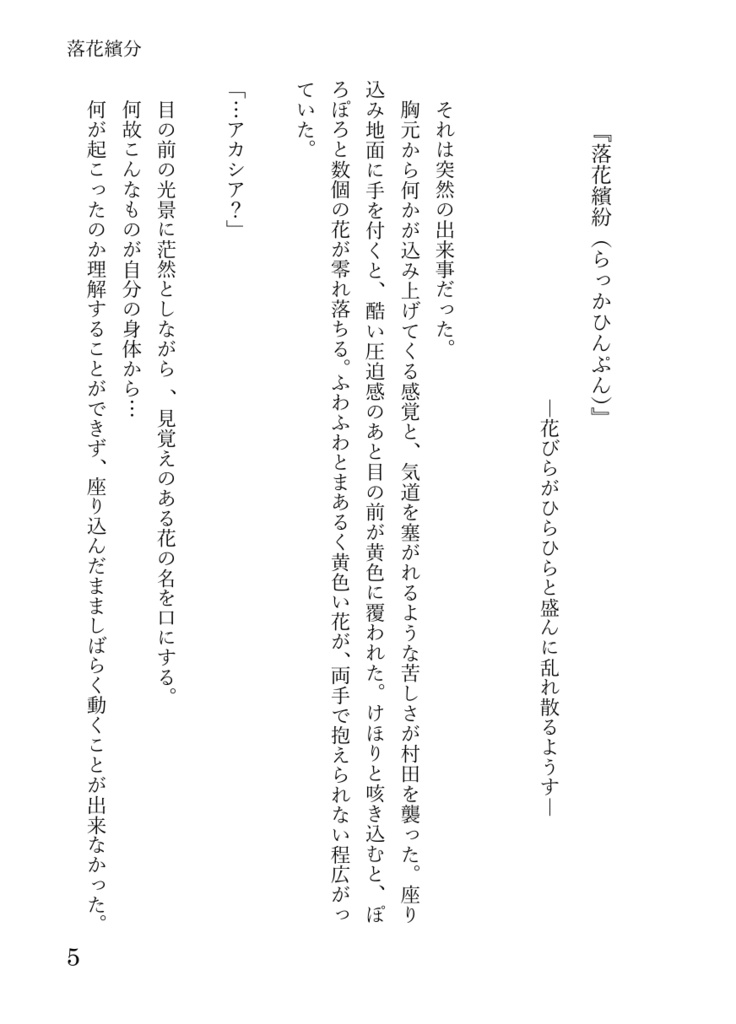 落花繽分
『落花繽紛（らっかひんぷん）』
―花びらがひらひらと盛んに乱れ散るようす―
それは突然の出来事だった。
胸元から何かが込み上げてくる感覚と、気道を塞がれるような苦しさが村田を襲った。座り
込み地面に手を付くと、酷い圧迫感のあと目の前が黄色に覆われた。けほりと咳き込むと、ぽ
ろぽろと数個の花が零れ落ちる。ふわふわとまあるく黄色い花が、両手で抱えられない程広がっ
ていた。
「…アカシア？」
目の前の光景に茫然としながら、見覚えのある花の名を口にする。
何故こんなものが自分の身体から…
何が起こったのか理解することができず、座り込んだまましばらく動くことが出来なかった。
5